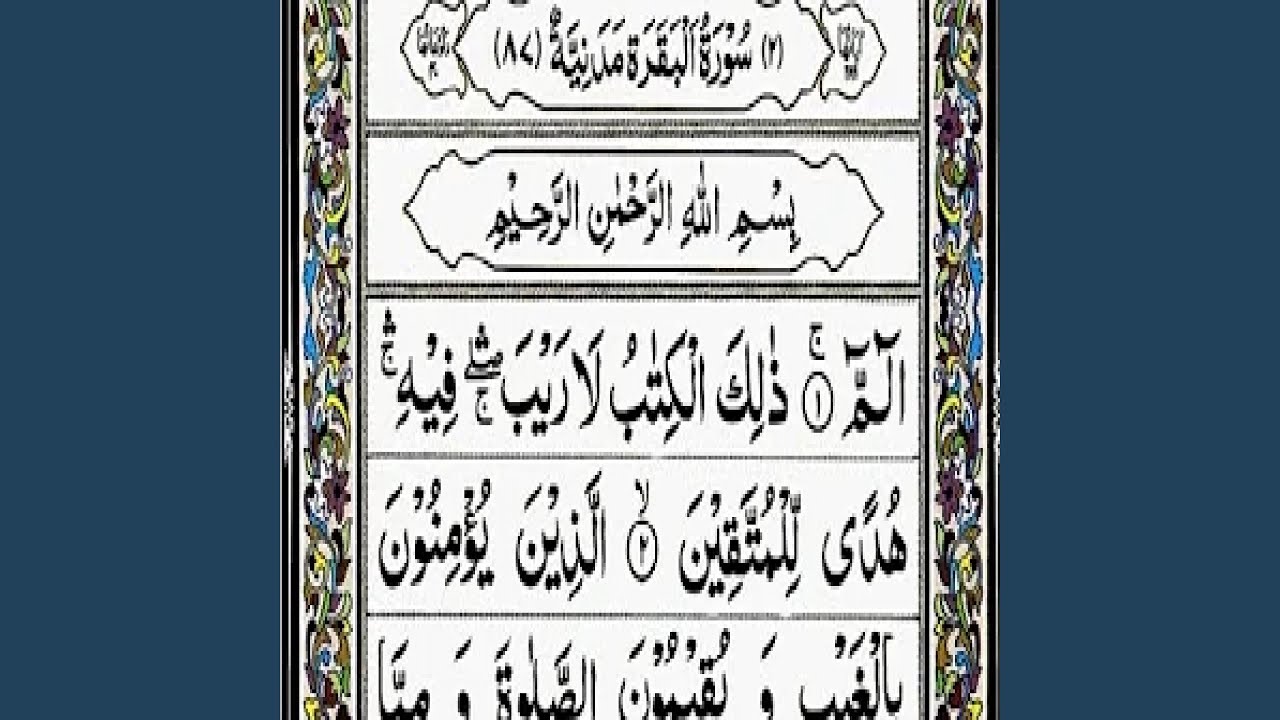 (٢) سُوْرَةُ الْبَقَرَةِ مَدَنِيَّةٌ (٨٧)
بِسْمِ اللّٰهِ الرَّحْمٰنِ الرَّحِيْمِ
الٓمّٓ ۚ﴿١﴾ ذٰلِكَ الْكِتٰبُ لَا رَيْبَ ۛۖۚ فِيْهِ ۛۚ
هُدًى لِّلْمُتَّقِيْنَ ۙ﴿٢﴾ الَّذِيْنَ يُؤْمِنُوْنَ
بِالْغَيْبِ وَ يُقِيْمُوْنَ الصَّلٰوةَ وَ مِمَّا